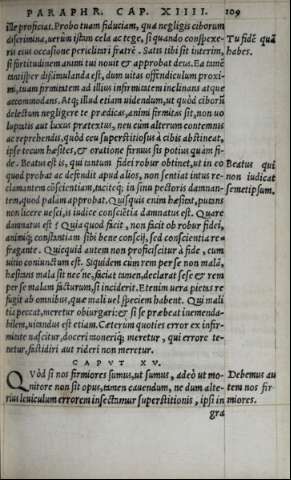 PARAPHR. CAP. XIIII. 109
ille proficiat. Probo tuam fiduciam, qua negligis ciborum
discrimina, uerùm istam cela ac tege, si quando conspexe-
ris eius occasione periclitari fratrē. Satis tibi sit interim,
si fortitudinem animi tui nouit & approbat deus. Ea tamē
tantisper dissimulanda est, dum uitas offendiculum proxi-
mi, tuam firmitatem ad illius infirmitatem inclinans atque
accommodans. Atq; illud etiam uidendum, ut quòd ciborū
delectum negligere te prædicas, animi firmitas sit, non uo
luptatis aut luxus prætextus, neu cùm alterum contemnis
ac reprehendis, quòd ceu superstitiosus à cibis abstineat,
ipse tecum hæsites, & oratione firmus sis potius quàm fi-
de. Beatus est is, qui tantum fidei robur obtinet, ut in eo
quod probat ac defendit apud alios, non sentiat intus re-
clamantem cōscientiam, taciteq; in sinu pectoris damnan-
tem, quod palàm approbat. Quisquis enim hæsitat, putans
non licere uesci, is iudice consciētia damnatus est. Quare
damnatus est? Quia quod facit, non facit ob robur fidei,
animiq; constantiam sibi bene conscij, sed conscientia re-
fragante. Quicquid autem non proficiscitur à fide, cum
uitio coniunctum est. Siquidem cum rem per se non malā,
hæsitans mala sit nec ne, faciat tamen, declarat sese & rem
per se malam facturum, si inciderit. Etenim uera pietas re
fugit ab omnibus, quæ mali uel speciem habent. Qui mali
tia peccat, meretur obiurgari: & si se præbeat inemenda-
bilem, uitandus est etiam. Cæterum quoties error ex infir-
mitate nascitur, doceri moneriq; meretur, qui errore te-
netur, fastidiri aut rideri non meretur.
Tu fidē quā
habes.
Beatus qui
non iudicat
semetipsum.
CAPVT XV.
QVòd si nos firmiores sumus, ut sumus, adeò ut mo-
nitore non sit opus, tamen cauendum, ne dum alte-
rius leuiculum errorem insectamur superstitionis, ipsi in
Debemus au
tem nos fir
miores.
gra